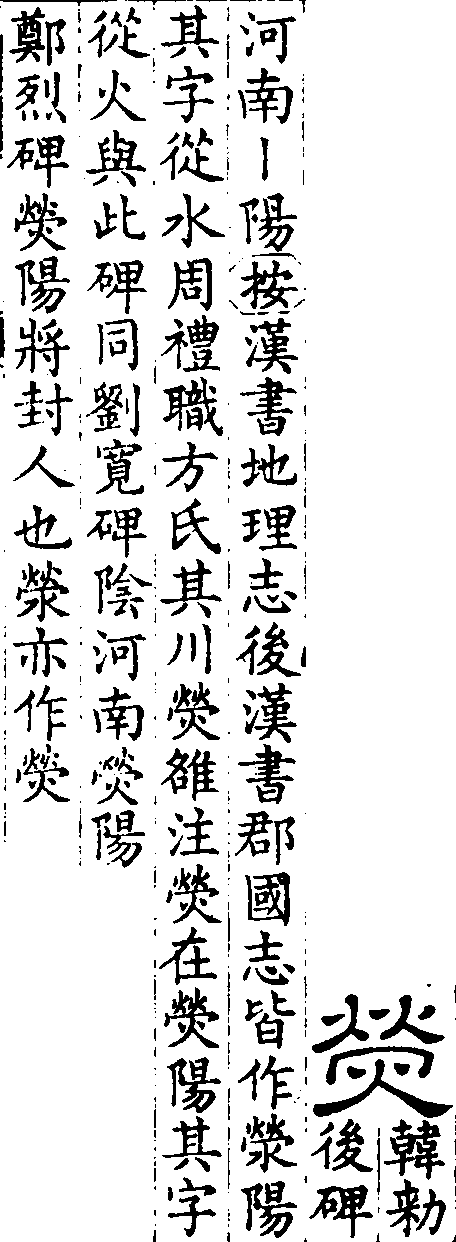 熒
韓勑
後碑
河南丨陽按漢書地理志後漢書郡國志皆作滎陽
其字從水周禮職方氏其川熒雒注熒在熒陽其字
從火與此碑同劉寬碑陰河南熒陽
鄭烈碑熒陽將封人也滎亦作熒